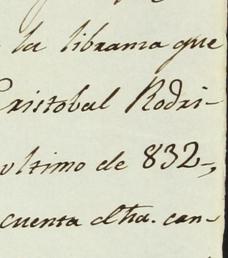 la libranza que
Cristobal Rodri-
ultimo de 832-,
cuenta dha. can-